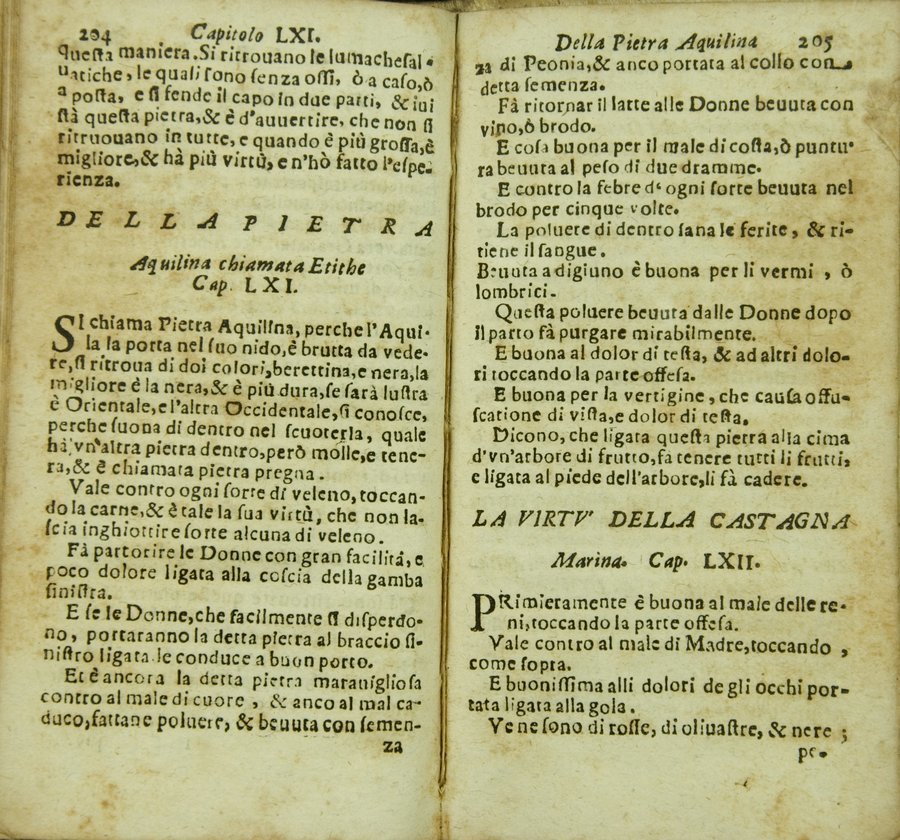 204 Capitolo LXI.
queſta maniera. Si ritrouano le lumacheſal-
uatiche, le quali ſono ſenza oſſi, ò a caſo, ò
a poſta, e ſi fende il capo in due parti, & iui
ſtà queſta pietra, & è d'auuertire, che non ſi
ritruouano in tutte, e quando è più groſſa, è
migliore, & hà più virtù, e n'hò fatto l'eſpe-
rienza.
DELLA PIETRA
Aquilina chiamata Etithe
Cap. LXI.
SI chiama Pietra Aquilina, perche l'Aqui-
la la porta nel ſuo nido, è brutta da vede-
re, ſi ritroua di doi colori, berettina, e nera, la
migliore è la nera, & è più dura, ſe ſarà luſtra
è Orientale, e l'altra Occidentale, ſi conoſce,
perche ſuona di dentro nel ſcuoterla, quale
hà vn'altra pietra dentro, però molle, e tene-
ra, & è chiamata pietra pregna.
Vale contro ogni ſorte di veleno, toccan-
do la carne, & è tale la ſua virtù, che non la-
ſcia inghiottire ſorte alcuna di veleno.
Fà partorire le Donne con gran facilità, e
poco dolore ligata alla coſcia della gamba
ſiniſtra.
E ſe le Donne, che facilmente ſi diſperdo-
no, portaranno la detta pietra al braccio ſi-
niſtro ligata le conduce a buon porto.
Et è ancora la detta pietra marauiglioſa
contro al male di cuore, & anco al mal ca-
duco, fattane poluere, & beuuta con ſemen-
za
Della Pietra Aquilina 205
za di Peonia, & anco portata al collo con
detta ſemenza.
Fà ritornar il latte alle Donne beuuta con
vino, ò brodo.
E coſa buona per il male di coſta, ò puntu-
ra beuuta al peſo di due dramme.
E contro la febre d'ogni ſorte beuuta nel
brodo per cinque volte.
La poluere di dentro ſana le ferite, & ri-
tiene il ſangue.
Beuuta a digiuno è buona per li vermi, ò
lombrici.
Queſta poluere beuuta dalle Donne dopo
il parto fà purgare mirabilmente.
E buona al dolor di teſta, & ad altri dolo-
ri toccando la parte offeſa.
E buona per la vertigine, che cauſa offu-
ſcatione di viſta, e dolor di teſta.
Dicono, che ligata queſta pietra alla cima
d'vn'arbore di frutto, fa tenere tutti li frutti,
e ligata al piede dell'arbore, li fà cadere.
LA VIRTV' DELLA CASTAGNA
Marina. Cap. LXII.
PRimieramente è buona al male delle re-
ni, toccando la parte offeſa.
Vale contro al male di Madre, toccando,
come ſopra.
E buoniſſima alli dolori degli occhi por-
tata ligata alla gola.
Ve ne ſono di roſſe, di oliuaſtre, & nere;
pe-